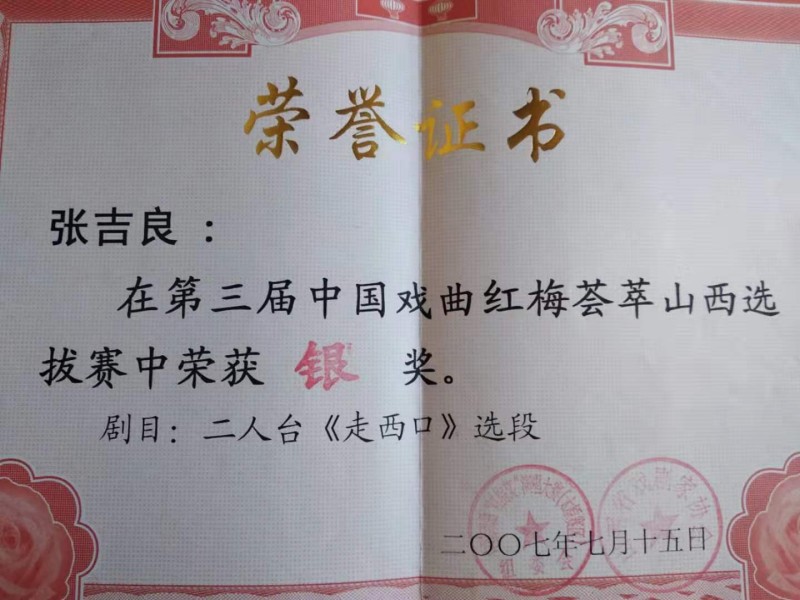 荣誉证书
张吉良：
在第三届中国戏曲红梅荟萃山西选
拔赛中荣获 银 奖。
剧目：二人台《走西口》选段
二〇〇七年七月十五日
组委会
省戏剧家协